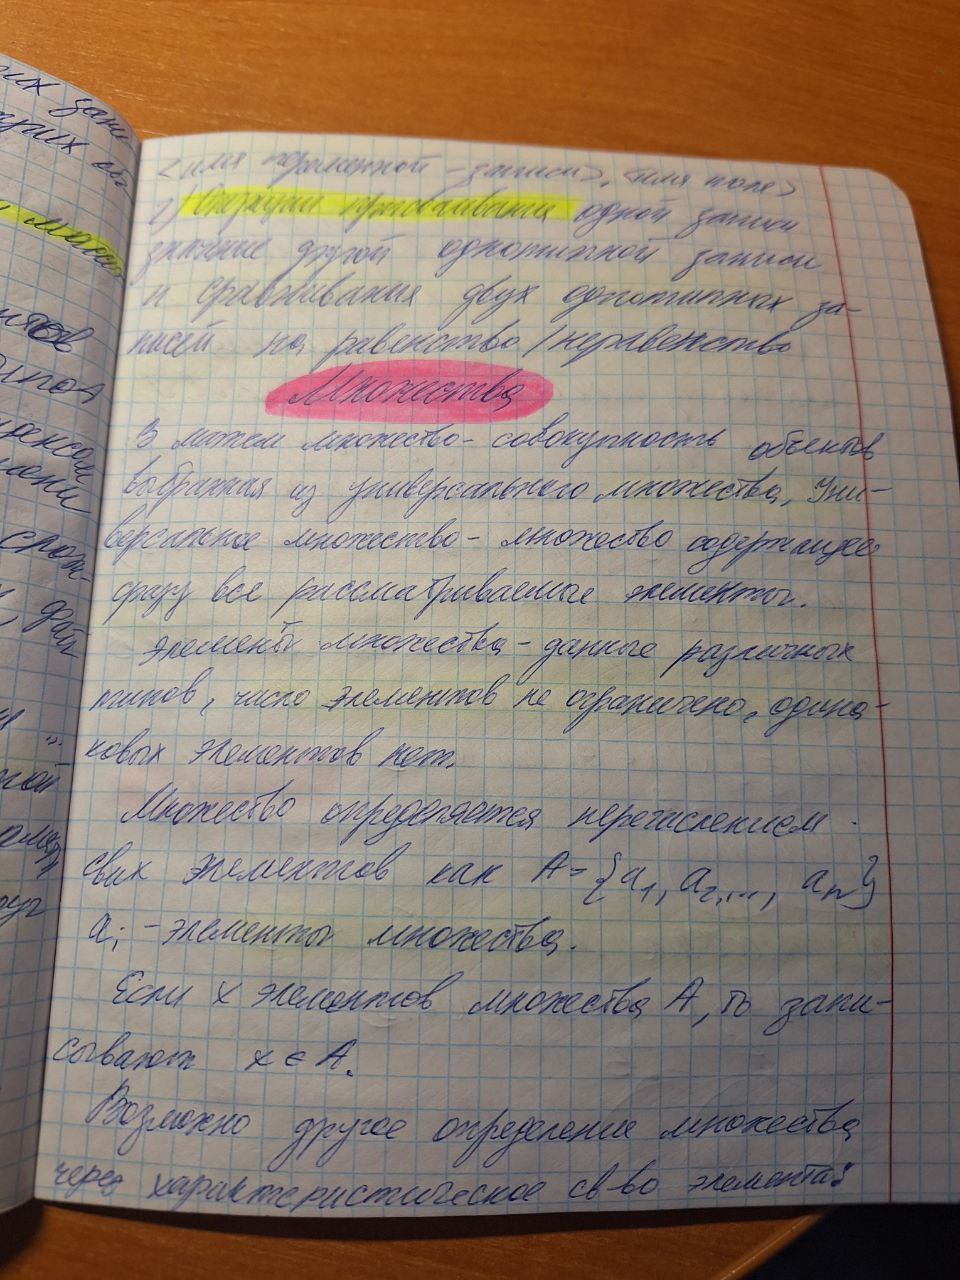 <имя переменной-записи>.<имя поле>
2) Операции присваивания одной записи
значение другой однотипной записи
и сравнивания двух однотипных за-
писей на равенство/неравенство
Множества
В матем множество- совокупность объектов
выбранная из универсального множества, Уни-
версальное множество- множество содержащее
сразу все рассматриваемые элементы.
Элементы множества- данные различных
типов, число элементов не ограничено, одина-
ковых элементов нет.
Множество определяется перечислением
свих элементов как A={a1, a2,..., an}
ai -элементы множества.
Если x элементов множества A, то запи-
сывают x ∈ A.
Возможно другое определение множества
через характеристическое св-во элемента: